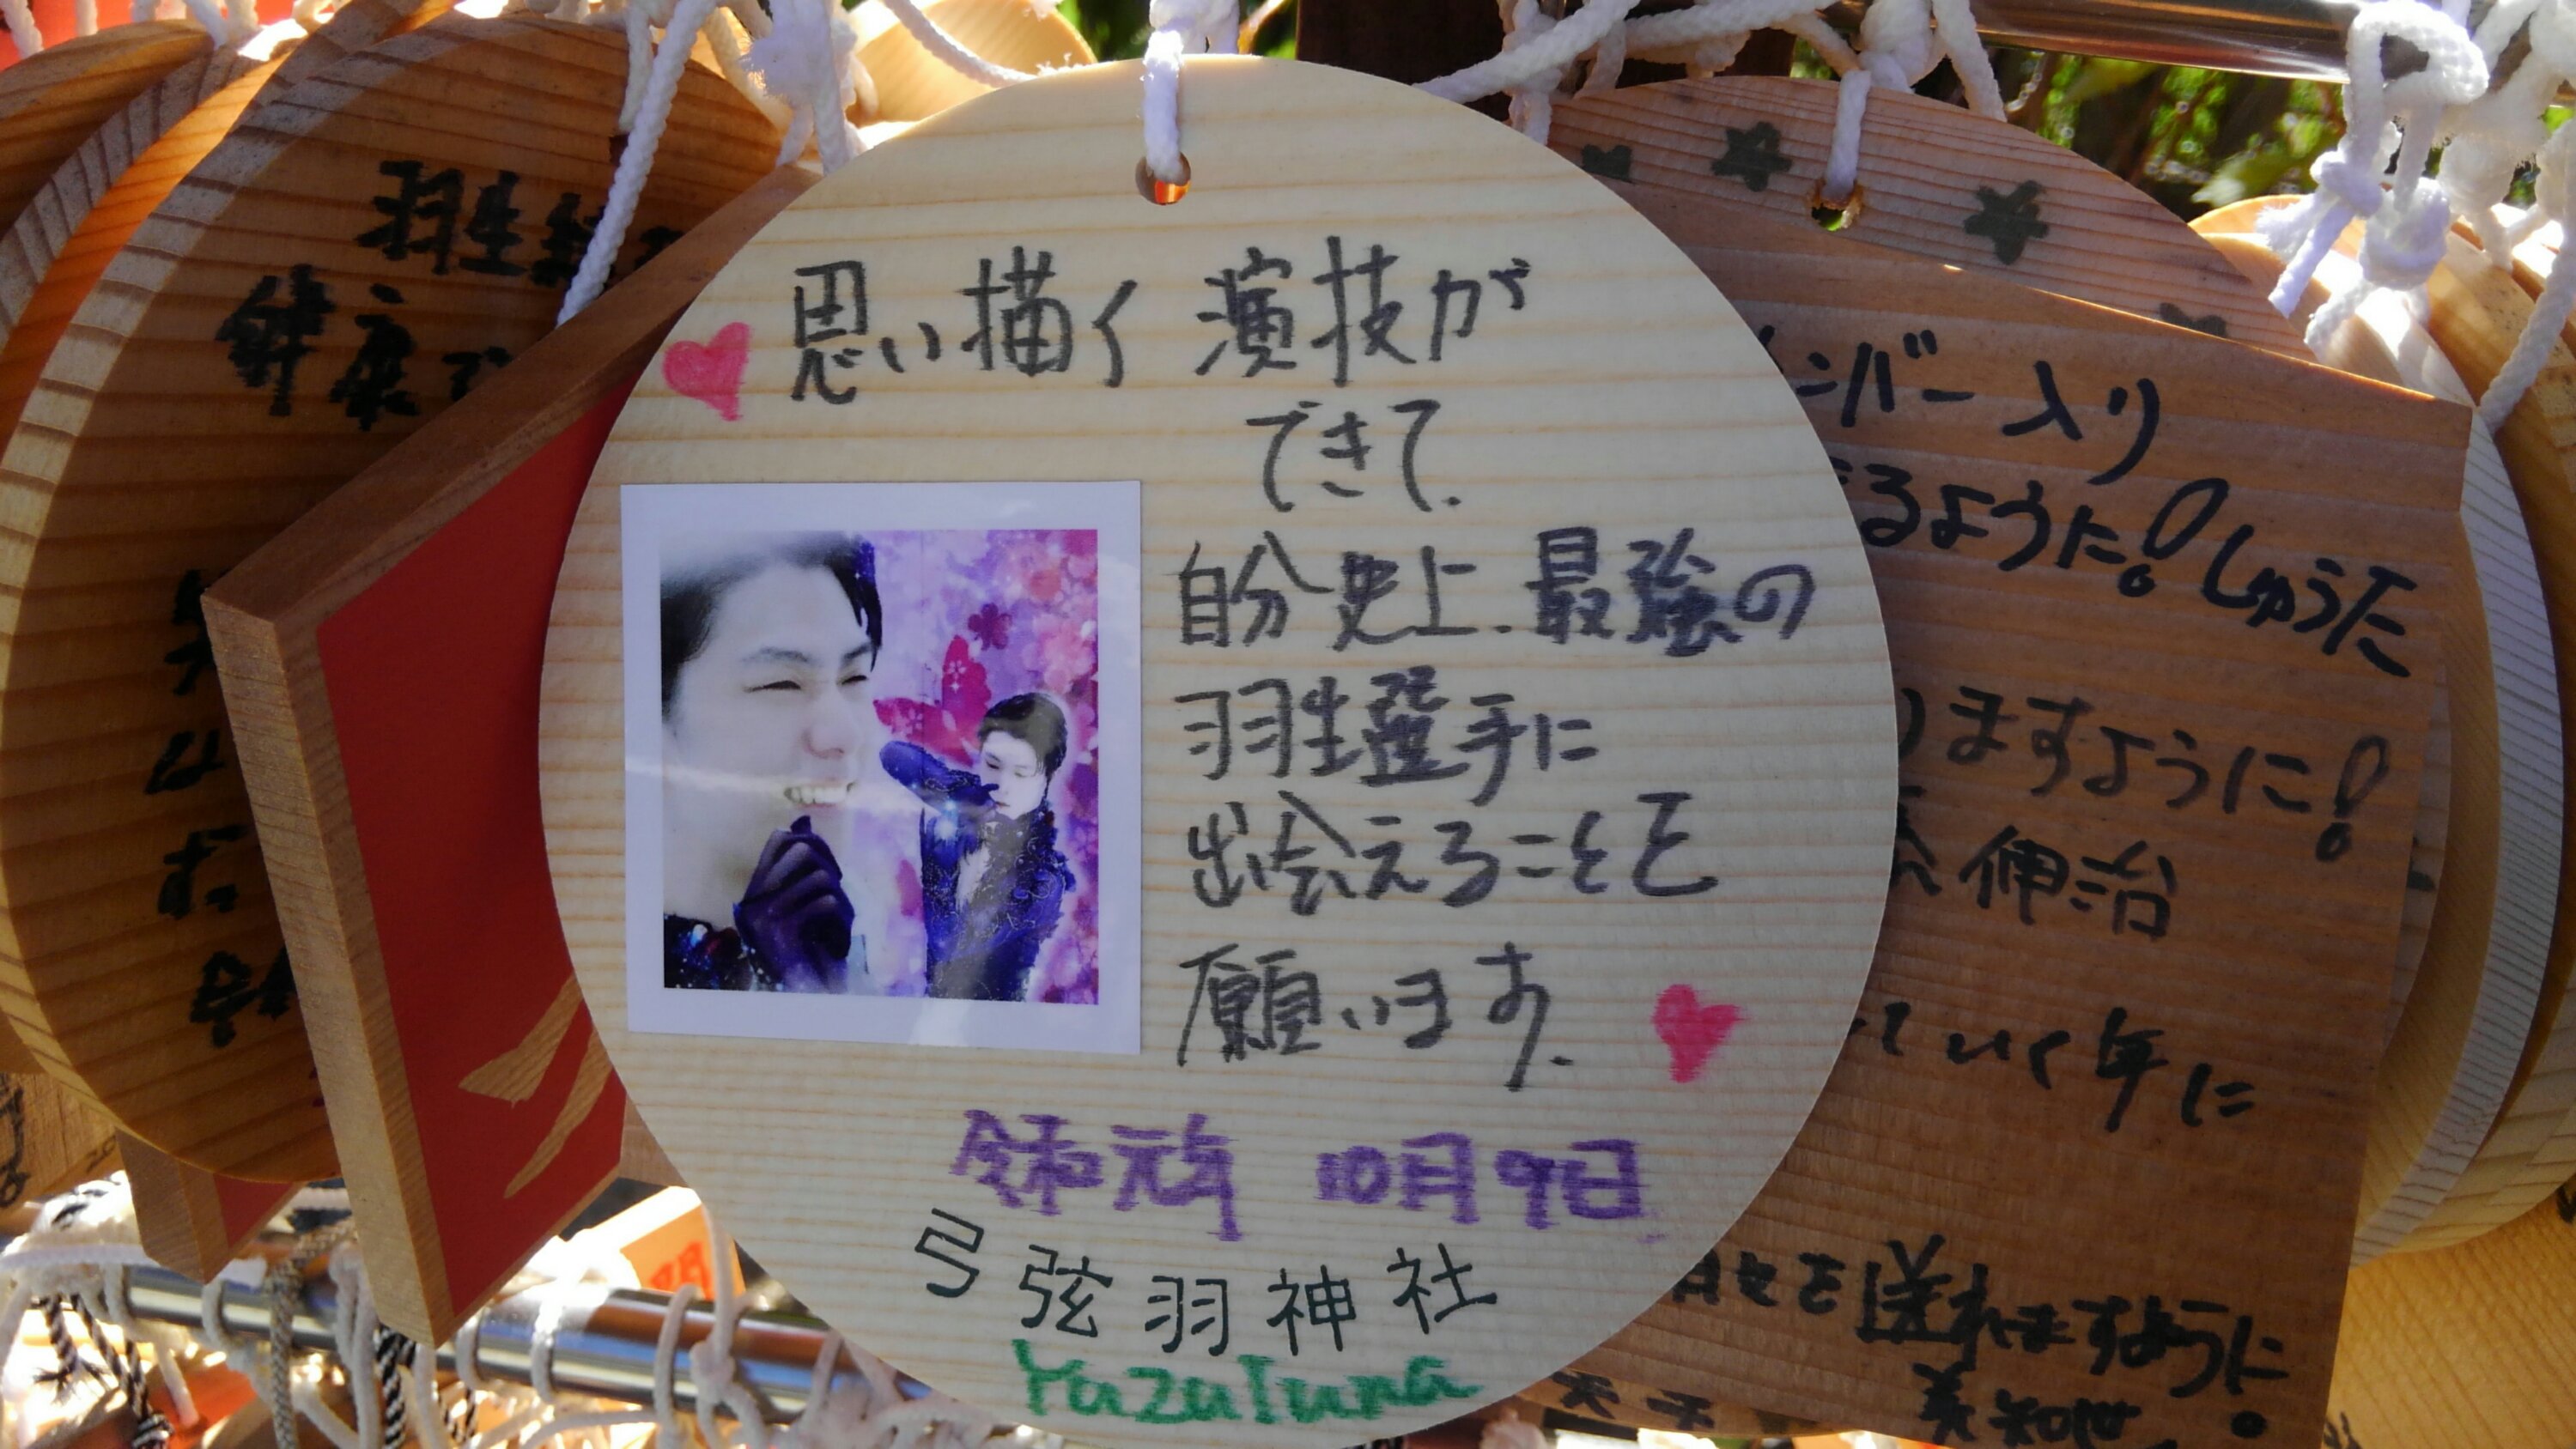 思い描く演技が
できて.
自分史上.最強の
羽生選手に
出会えることを
願います.
令和元年 10月9日
弓弦羽神社
Yuzuluna
羽生結
健康で
ンバー入り
るように! しゅうた
りますように!
伸治
ていく年に
日々を送れますように
美知世